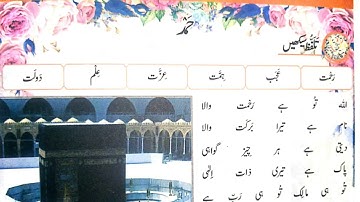 حمد
تلفظ سیکھیں
رحمت عجب ہمت عزت علم دولت
اللہ تُو ہے رحمت والا
نام ہے تیرا برکت والا
دیتی ہے ہر چیز گواہی
پاک ہے تیری ذات الٰہی
تُو ہی مالک تُو ہی رب ہے